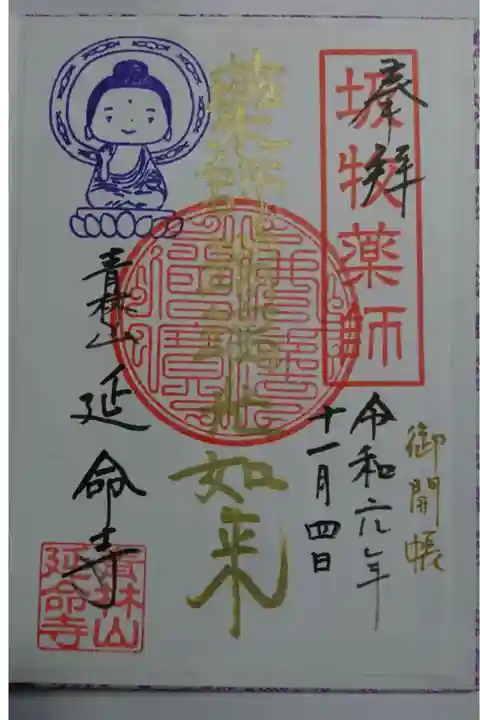 奉拝
薬師
御開帳
令和六年
十一月四日
如来
青林山
延命寺
青林山
延命寺